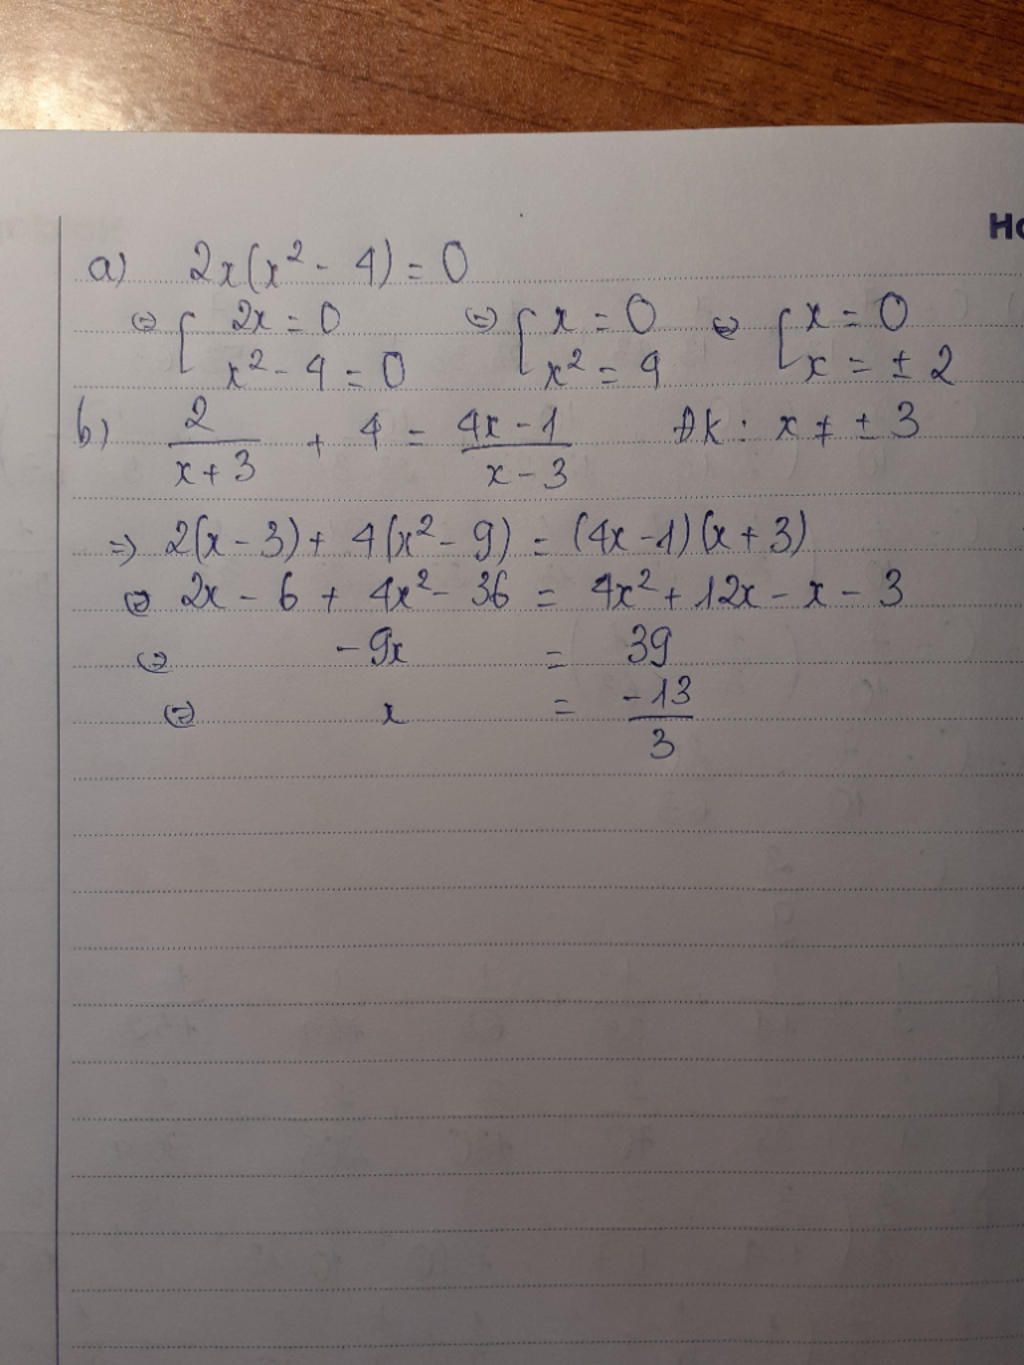 Ho
a) 2x(x² - 4) = 0
⇔ [ 2x = 0 ⇔ [ x = 0 ⇔ [ x = 0
x² - 4 = 0 x² = 4 x = ± 2
b) 2/(x + 3) + 4 = (4x - 1)/(x - 3) ĐK : x ≠ ± 3
⇒ 2(x - 3) + 4(x² - 9) = (4x - 1)(x + 3)
⇔ 2x - 6 + 4x² - 36 = 4x² + 12x - x - 3
⇔ -9x = 39
⇔ x = -13/3